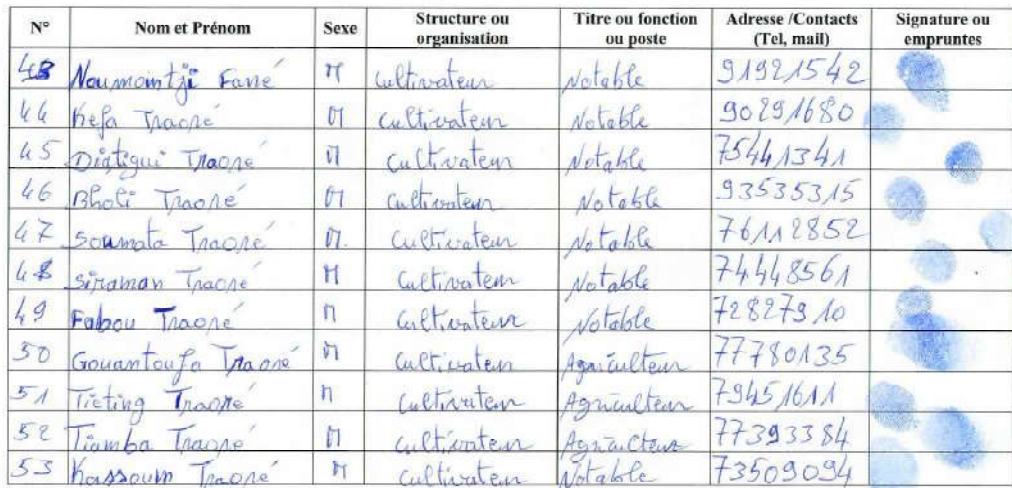 N° Nom et Prénom Sexe Structure ou organisation Titre ou fonction ou poste Adresse /Contacts (Tel, mail) Signature ou empruntes
43 Noumomtji Fané M Cultivateur Notable 91921542
44 Kefa Traoré M Cultivateur Notable 90291680
45 Diatigui Traoré M Cultivateur Notable 75441341
46 Bholi Traoré M Cultivateur Notable 93535315
47 Soumata Traoré M. Cultivateur Notable 76112852
48 Siraman Traoré M Cultivateur Notable 74448561
49 Fabou Traoré M Cultivateur Notable 72827910
50 Gouantoufa Traoré M Cultivateur Agriculteur 77780135
51 Tieting Traoré M Cultivateur Agriculteur 79451611
52 Tiamba Traoré M Cultivateur Agriculteur 77393384
53 Kassoum Traoré M Cultivateur Notable 73509094